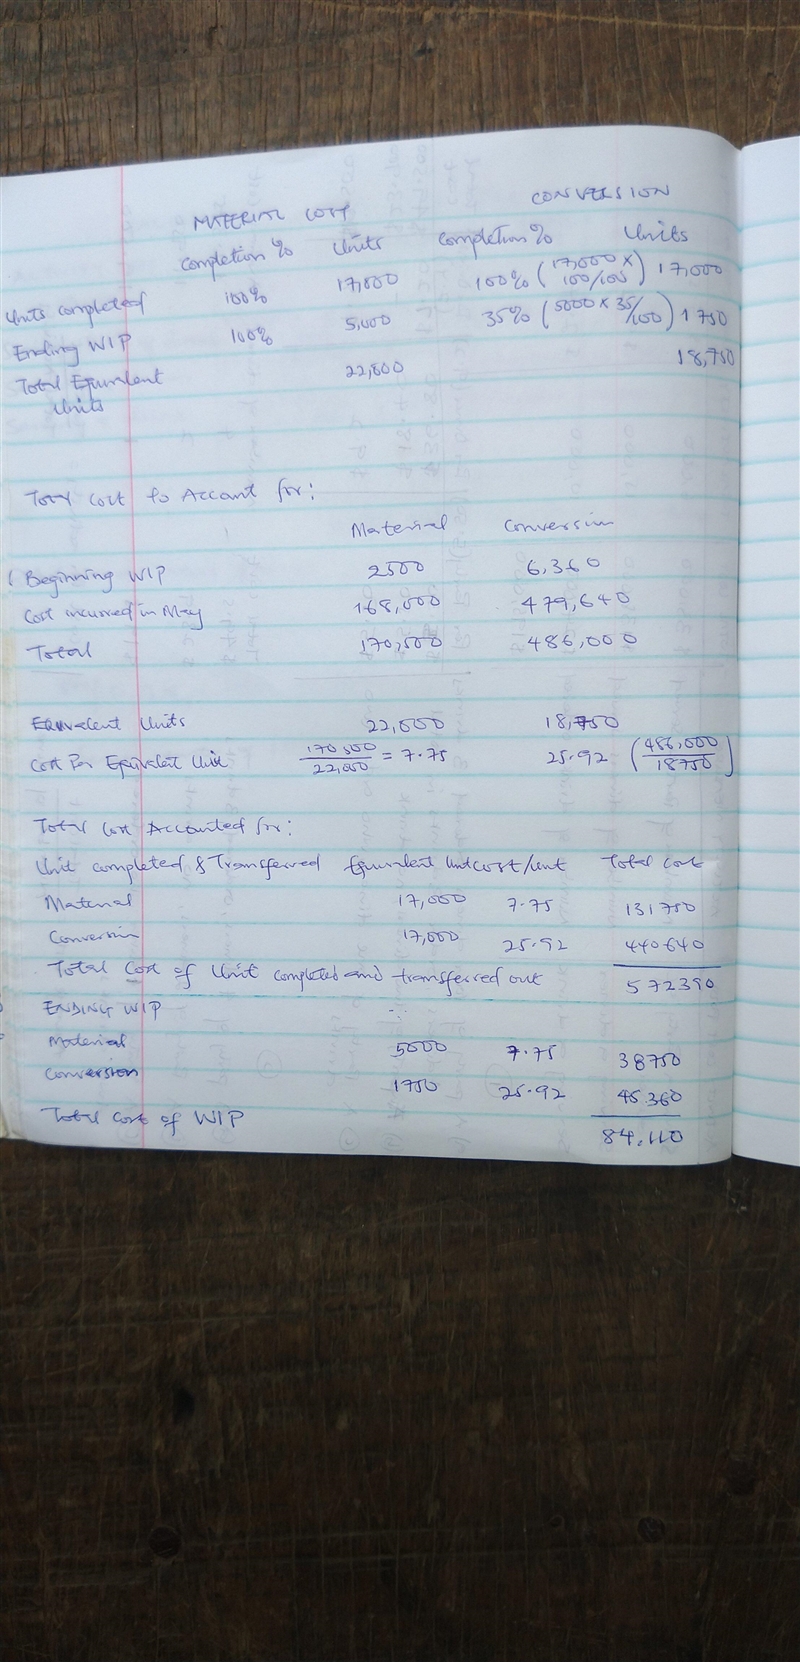 MATERIAL COST CONVERSION
Completion % Units Completion % Units
Units completed 100% 17,000 100% (17,000 × 100/100) 17,000
Ending WIP 100% 5,000 35% (5000 × 35/100) 1750
Total Equivalent Units 22,000 18,750
Total Cost to Account for:
Material Conversion
( Beginning WIP 2500 6,360
Cost incurred in May 168,000 479,640
Total 170,500 486,000
Equivalent Units 22,000 18,750
Cost Per Equivalent Unit 170500/22,000 = 7.75 25.92 (486,000/18750)
Total Cost Accounted for:
Unit completed & Transferred Equivalent Unit cost/unit Total cost
Material 17,000 7.75 131750
Conversion 17,000 25.92 440640
Total Cost of Unit completed and transferred out 572390
ENDING WIP
Material 5000 7.75 38750
Conversion 1750 25.92 45.360
Total Cost of WIP 84,110